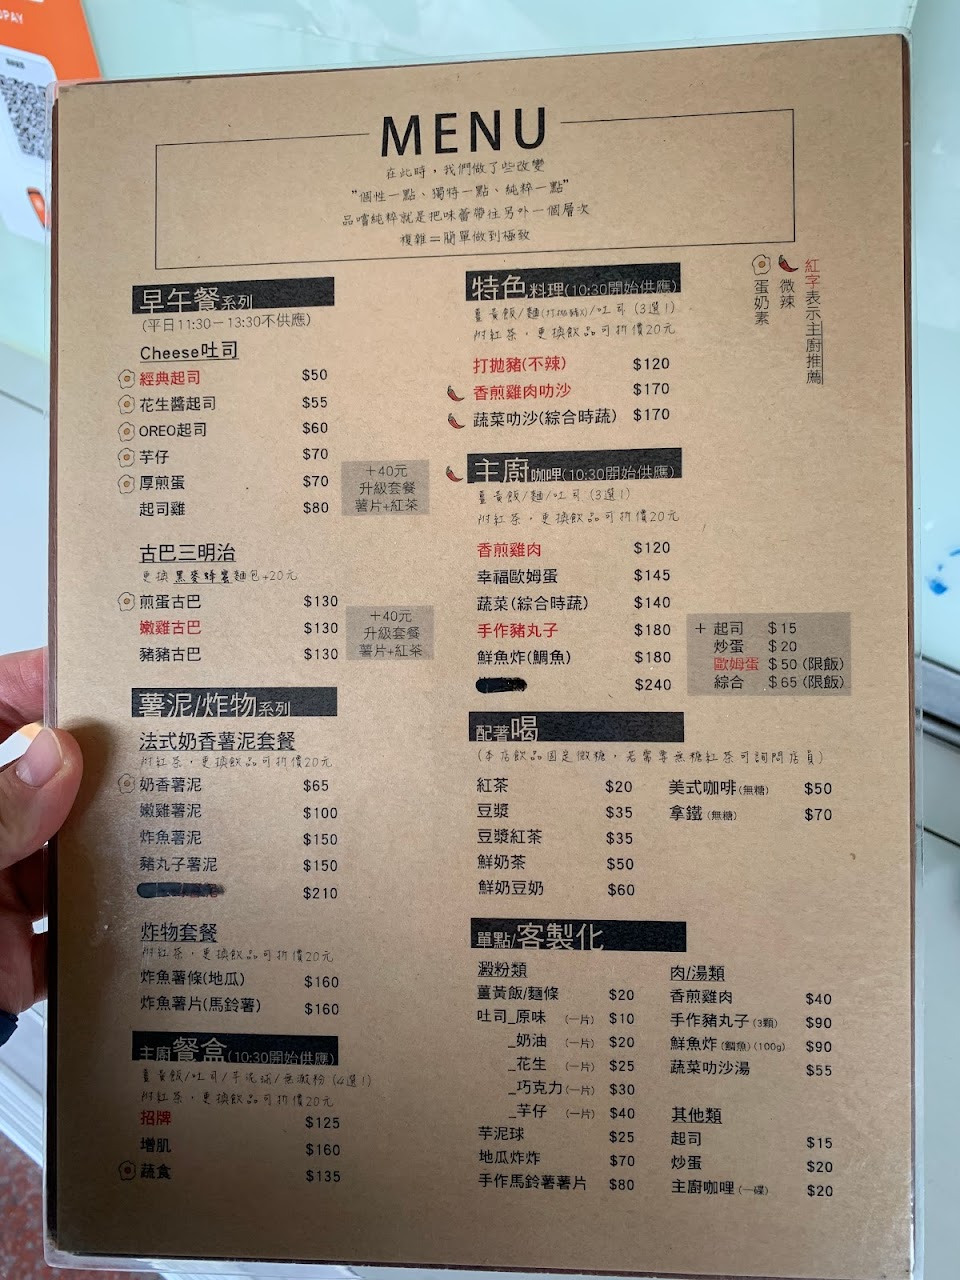 PAY
MENU
在此時，我們做了些改變
"個性一點、獨特一點、純粹一點"
品嚐純粹就是把味蕾帶往另外一個層次
複雜＝簡單做到極致
蛋奶素
微辣
紅字表示主廚推薦
早午餐系列
(平日11:30－13:30不供應)
Cheese吐司
經典起司 $50
花生醬起司 $55
OREO起司 $60
芋仔 $70
厚煎蛋 $70
起司雞 $80
＋40元
升級套餐
薯片+紅茶
古巴三明治
更換黑麥蜂蜜麵包+20元
煎蛋古巴 $130
嫩雞古巴 $130
豬豬古巴 $130
＋40元
升級套餐
薯片+紅茶
薯泥/炸物系列
法式奶香薯泥套餐
附紅茶，更換飲品可折價20元
奶香薯泥 $65
嫩雞薯泥 $100
炸魚薯泥 $150
豬丸子薯泥 $150
$210
炸物套餐
附紅茶，更換飲品可折價20元
炸魚薯條(地瓜) $160
炸魚薯片(馬鈴薯) $160
主廚餐盒(10:30開始供應)
薑黃飯/吐司/芋泥球/無澱粉 (4選1)
附紅茶，更換飲品可折價20元
招牌 $125
增肌 $160
蔬食 $135
特色料理(10:30開始供應)
薑黃飯/麵(打拋豬X)/吐司 (3選1)
附紅茶，更換飲品可折價20元
打拋豬(不辣) $120
香煎雞肉叻沙 $170
蔬菜叻沙(綜合時蔬) $170
主廚咖哩(10:30開始供應)
薑黃飯/麵/吐司 (3選1)
附紅茶，更換飲品可折價20元
香煎雞肉 $120
幸福歐姆蛋 $145
蔬菜(綜合時蔬) $140
手作豬丸子 $180
鮮魚炸(鯛魚) $180
$240
＋ 起司 $15
炒蛋 $20
歐姆蛋 $50 (限飯)
綜合 $65 (限飯)
配著喝
(本店飲品固定微糖，若需要無糖紅茶可詢問店員)
紅茶 $20
豆漿 $35
豆漿紅茶 $35
鮮奶茶 $50
鮮奶豆奶 $60
美式咖啡(無糖) $50
拿鐵(無糖) $70
單點/客製化
澱粉類
薑黃飯/麵條 $20
吐司_原味 (一片) $10
_奶油 (一片) $20
_花生 (一片) $25
_巧克力(一片) $30
_芋仔 (一片) $40
芋泥球 $25
地瓜炸炸 $70
手作馬鈴薯薯片 $80
肉/湯類
香煎雞肉 $40
手作豬丸子(3顆) $90
鮮魚炸(鯛魚)(100g) $90
蔬菜叻沙湯 $55
其他類
起司 $15
炒蛋 $20
主廚咖哩(一碟) $20